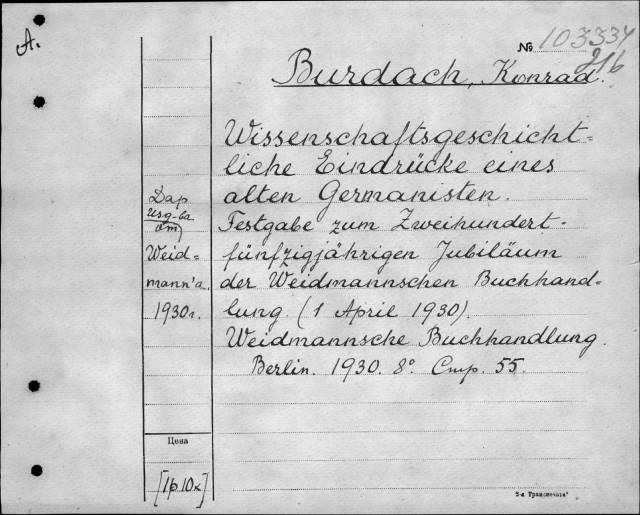 А.
№ 103334
216
Burdach, Konrad.
Wissenschaftsgeschicht=
liche Eindrücke eines
alten Germanisten.
Festgabe zum Zweihundert-
fünfzigjährigen Jubiläum
der Weidmannschen Buchhand=
lung. (1 April 1930).
Weidmannsche Buchhandlung.
Berlin. 1930. 8° Стр. 55.
Дар
изд-ва
Weid=
mann'a.
1930 г.
Цена
[1р 10к]
2-я Транспечать